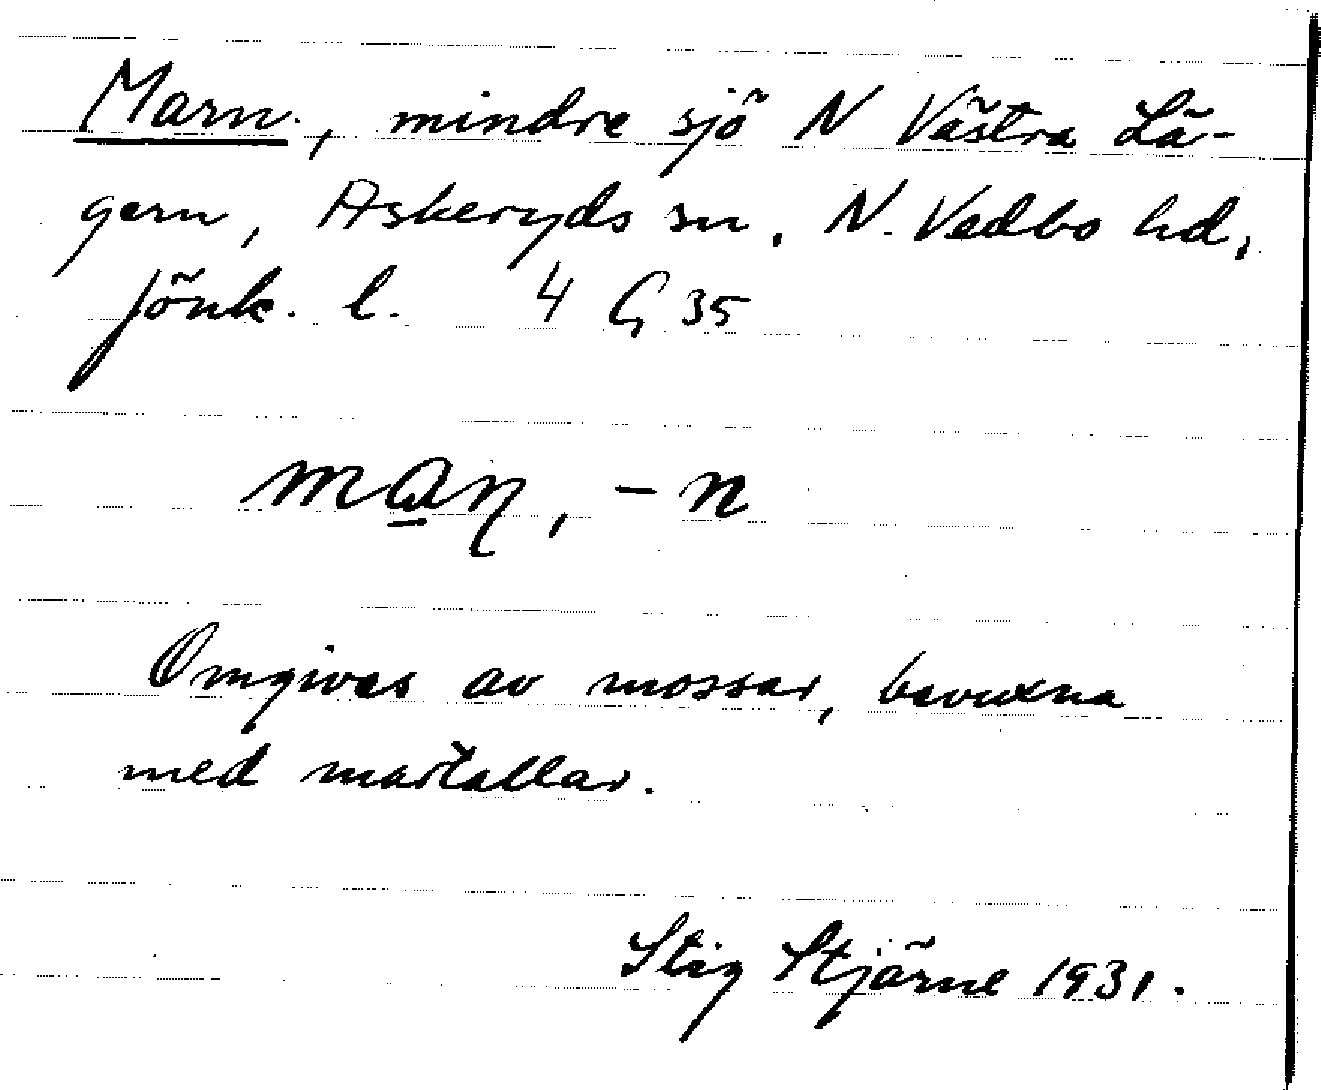 Marn., mindre sjö N Västra Lä-
gern, Askeryds sn. N. Vedbo hd.
Jönk. l. 4 G 35
man, -n
Omgives av mossar, bevuxna
med martallar.
Stig Stjärne 1931.